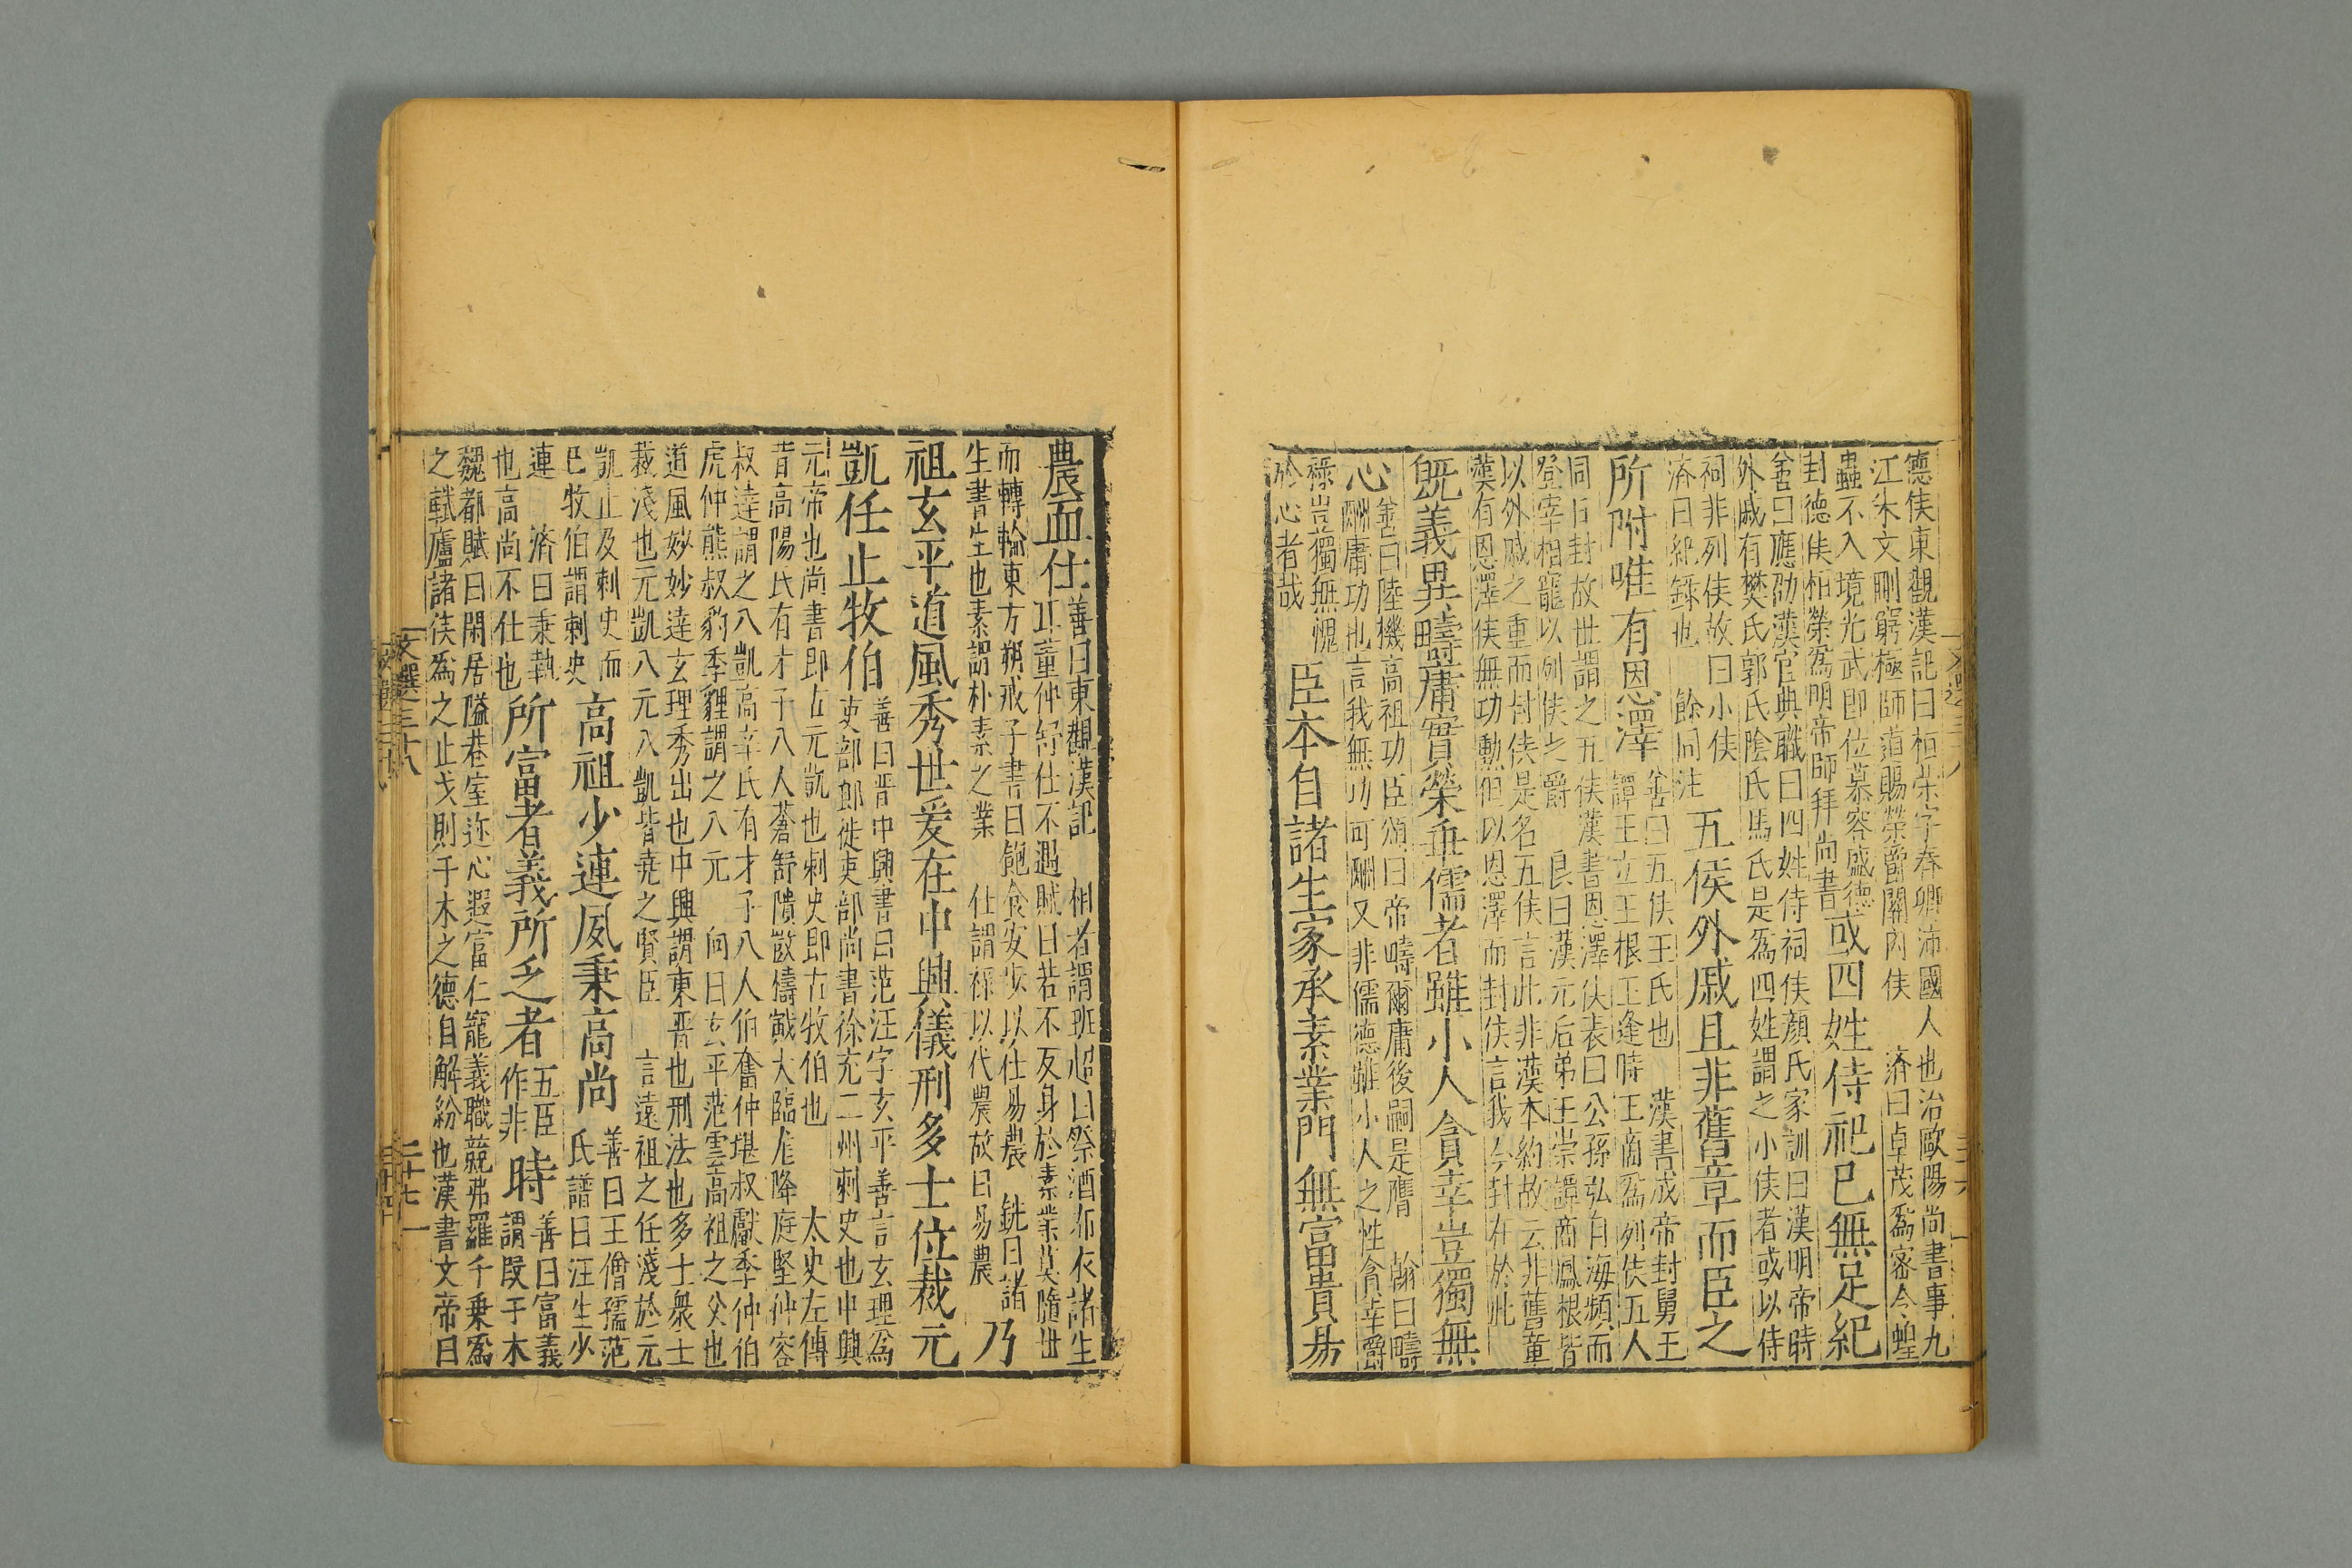 德侯東觀漢記曰桓榮字春卿沛國人也治歐陽尚書事九
江朱文剛窮極師道賜榮爵關內侯　濟曰卓茂爲密令蝗
蟲不入境光武即位慕容盛德或四姓侍祀已無足紀
封德侯桓榮爲明帝師拜尚書
善曰應劭漢官典職曰四姓侍祠侯顏氏家訓曰漢明帝時
外戚有樊氏郭氏陰氏馬氏是爲四姓謂之小侯者或以侍
祠非列侯故曰小侯　五侯外戚且非舊章而臣之
濟曰紀錄也　餘同注
所附唯有恩澤善曰五侯王氏也　漢書成帝封舅王
譚王立王根王逢時王商爲列侯五人
同日封故世謂之五侯漢書恩澤侯表曰公孫弘自海瀕而
登宰相寵以列侯之爵　良曰漢元后弟王崇譚商鳳根皆
以外戚之重而封侯是名五侯言此非漢本約故云非舊章
漢有恩澤侯無功勳但以恩澤而封侯言我今封在於此
既義異疇庸實榮乖儒者雖小人貪幸豈獨無
心善曰陸機高祖功臣頌曰帝疇爾庸後嗣是膺　翰曰疇
酬庸功也言我無功可酬又非儒德雖小人之性貪幸爵
祿豈獨無愧　臣本自諸生家承素業門無富貴易
於心者哉
農而仕善曰東觀漢記　相者謂班超曰祭酒布衣諸生
耳董仲舒仕不遇賦曰若不反身於素業莫隨世
而轉輪東方朔戒子書曰飽食安步以仕易農　銑曰諸　乃
生書生也素謂朴素之業　仕謂祿以代農故曰易農
祖玄平道風秀世爰在中興儀刑多士位裁元
凱任止牧伯善曰晉中興書曰范汪字玄平善言玄理爲
吏部郎徙吏部尚書徐兗二州刺史也中興
元帝也尚書即古元凱也刺史即古牧伯也　太史左傳
昔高陽氏有才子八人蒼舒隤敱檮戭大臨尨降庭堅仲容
叔達謂之八凱高辛氏有才子八人伯奮仲堪叔獻季仲伯
虎仲熊叔豹季貍謂之八元　向曰玄平范雲高祖之父也
道風妙妙達玄理秀出也中興謂東晉也刑法也多士衆士
裁淺也元凱八元八凱皆堯之賢臣　言遠祖之任淺於元
凱止及刺史而　高祖少連夙秉高尚善曰王僧孺范
已牧伯謂刺史　氏譜曰汪生少
連　濟曰秉執　所富者義所乏者五臣　時善曰富義
也高尚不仕也　作非　謂段干木
魏都賦曰閑居隘巷室邇心遐富仁寵義職競弗羅千乘爲
之軾廬諸侯爲之止戈則干木之德自解紛也漢書文帝曰
文選三十八　三十七